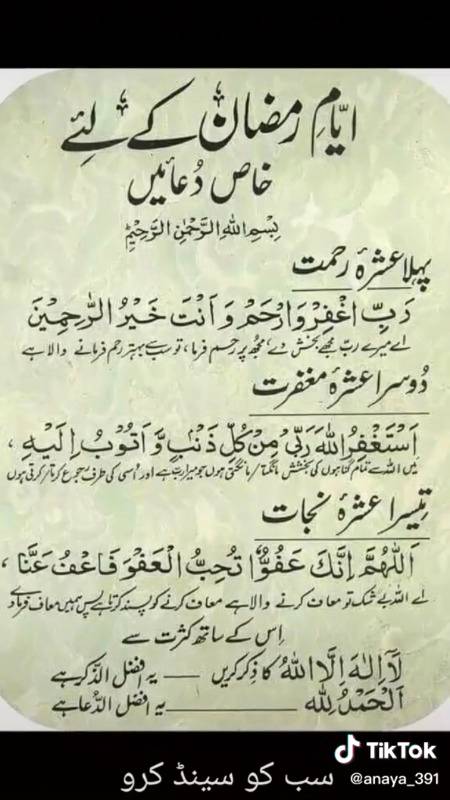 ایّامِ رمضان کے لئے
خاص دُعائیں
بِسْمِ اللهِ الرَّحْمٰنِ الرَّحِيْمِ
پہلا عشرۂ رحمت
رَبِّ اغْفِرْ وَارْحَمْ وَاَنْتَ خَيْرُ الرّٰحِمِيْنَ
اے میرے ربّ مجھے بخش دے، مجھ پر رحم فرما، تو سب سے بہتر رحم فرمانے والا ہے
دُوسرا عشرۂ مغفرت
اَسْتَغْفِرُ اللهَ رَبِّيْ مِنْ كُلِّ ذَنْۢبٍ وَّاَتُوْبُ اِلَيْهِ ،
میں اللہ سے تمام گناہوں کی بخشش مانگتا/مانگتی ہوں جو میرا رب ہے اور اُسی کی طرف رجوع کرتا/کرتی ہوں
تیسرا عشرۂ نجات
اَللّٰهُمَّ اِنَّكَ عَفُوٌّ تُحِبُّ الْعَفْوَ فَاعْفُ عَنَّا ،
اے اللہ بے شک تو معاف کرنے والا ہے معاف کرنے کو پسند کرتا ہے پس ہمیں معاف فرما دے
اِس کے ساتھ کثرت سے
لَآ اِلٰهَ اِلَّا اللهُ کا ذِکر کریں — یہ افضل الذّکر ہے
اَلْحَمْدُ لِلّٰه — یہ افضل الدُّعا ہے
TikTok
سب کو سینڈ کرو
@anaya_391